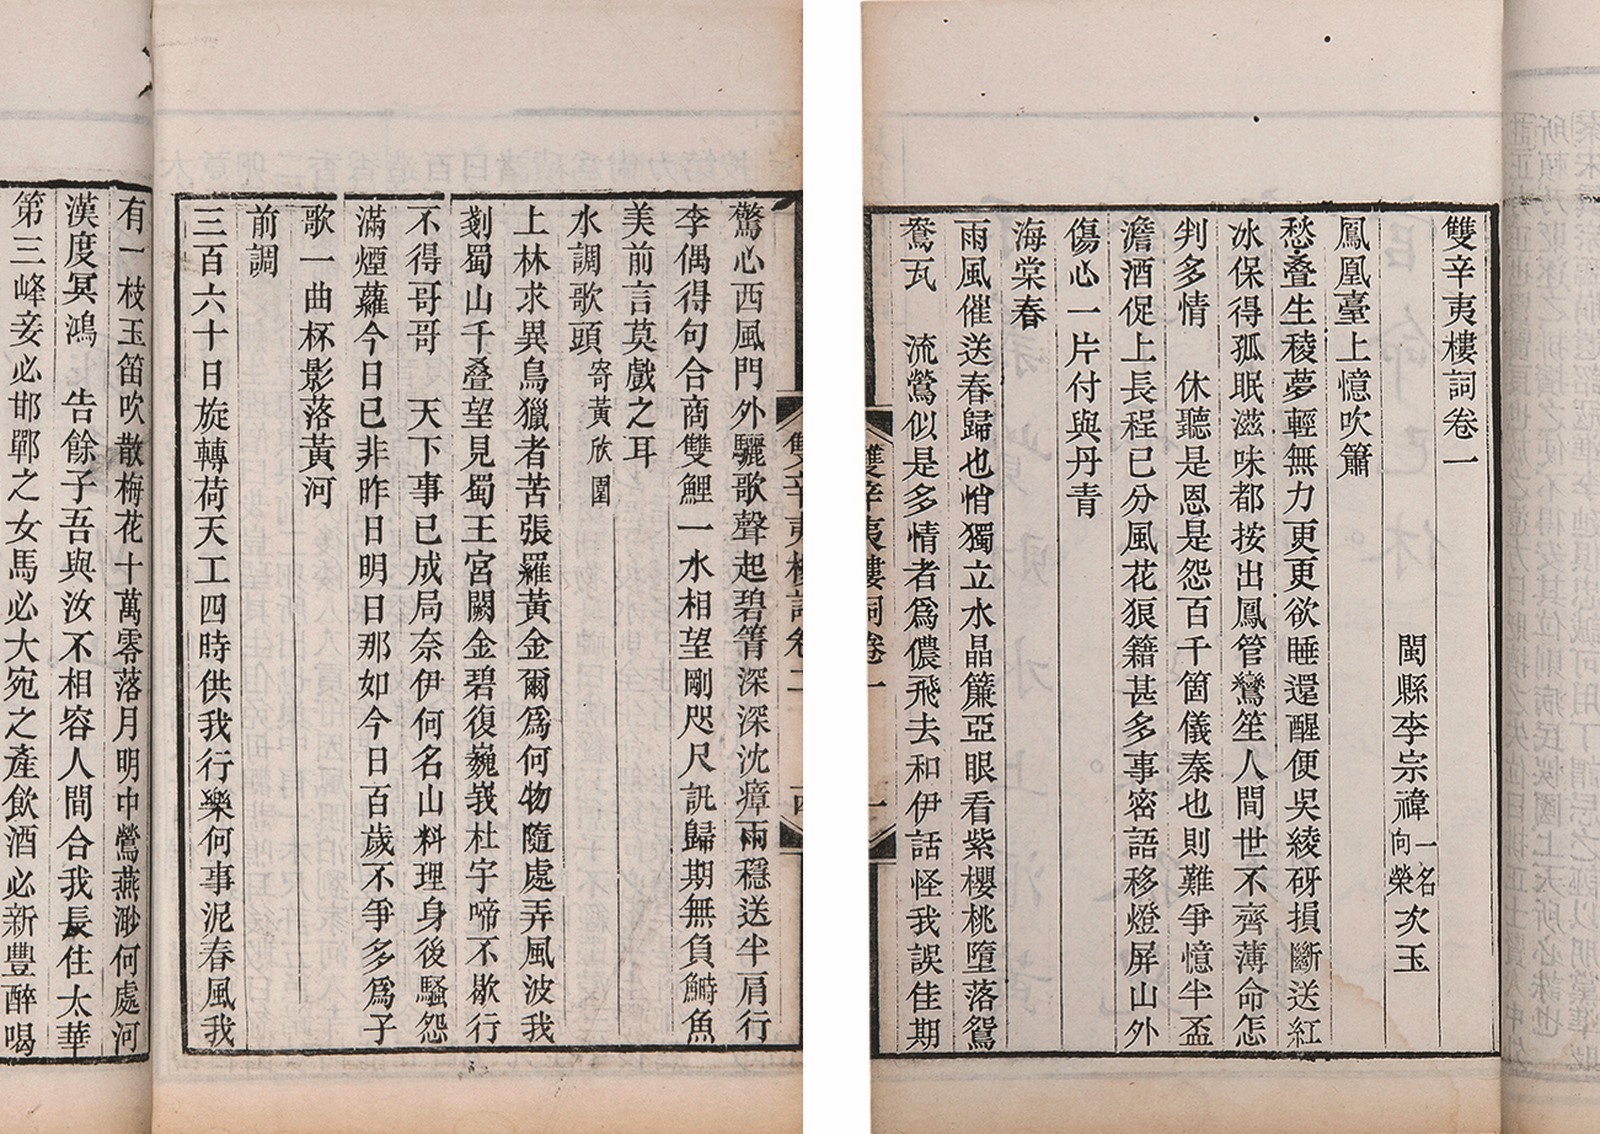 雙辛夷樓詞卷一
閩縣李宗禕一名向榮次玉
鳳凰臺上憶吹簫
愁叠生稜夢輕無力更更欲睡還醒便吳綾砑損斷送紅
冰保得孤眠滋味都按出鳳管鸞笙人間世不齊薄命怎
判多情　休聽是恩是怨百千箇儀秦也則難爭憶半盃
澹酒促上長程已分風花狼籍甚多事密語移燈屏山外
傷心一片付與丹青
海棠春
雨風催送春歸也悄獨立水晶簾亞眼看紫櫻桃墮落鴛
鴦瓦　流鶯似是多情者爲儂飛去和伊話怪我誤佳期
雙辛夷樓詞卷一
一
雙辛夷樓詞卷二
驚心西風門外驪歌聲起碧箐深深沈瘴雨穩送半肩行
李偶得句合商雙鯉一水相望剛咫尺訊歸期無負鰣魚
美前言莫戲之耳
水調歌頭寄黃欣園
上林求異鳥獵者苦張羅黃金爾爲何物隨處弄風波我
剗蜀山千叠望見蜀王宮闕金碧復巍峩杜宇啼不歇行
不得哥哥　天下事已成局奈伊何名山料理身後騷怨
滿煙蘿今日已非昨日明日那如今日百歲不爭多爲子
歌一曲杯影落黃河
前調
三百六十日旋轉荷天工四時供我行樂何事泥春風我
有一枝玉笛吹散梅花十萬零落月明中鶯燕渺何處河
漢度冥鴻　告餘子吾與汝不相容人間合我長住太華
第三峰妾必邯鄲之女馬必大宛之產飲酒必新豐醉喝